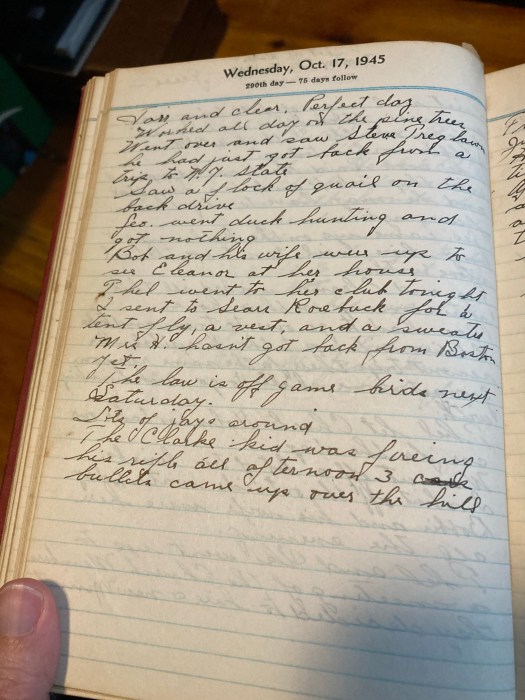 Wednesday, Oct. 17, 1945
290th day — 75 days follow
Fair and clear. Perfect day
Worked all day on the pine trees
Went over and saw Steve Treglawn
he had just got back from a
trip to N.Y. State
Saw a flock of quail on the
back drive
Geo. went duck hunting and
got nothing
Bob and his wife were up to
see Eleanor at her house
Thel went to her club tonight
I sent to Sears Roebuck for a
tent fly, a vest, and a sweater
Mrs H. hasn't got back from Boston
yet.
The law is off game birds next
Saturday.
Lots of jays around
The Clarke kid was fireing
his rifle all afternoon 3
bullets came up over the hill